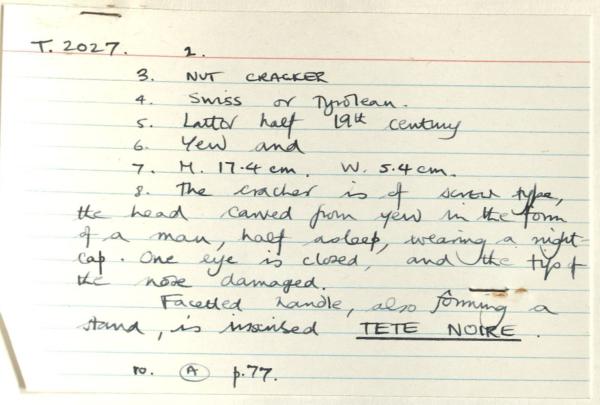 T. 2027. 2.
3. NUT CRACKER
4. Swiss or Tyrolean.
5. Latter half 19th century
6. Yew and
7. H. 17.4 cm. W. 5.4 cm.
8. The cracker is of screw type,
the head carved from yew in the form
of a man, half asleep, wearing a night-
cap. One eye is closed, and the tip of
the nose damaged.
Facetted handle, also forming a
stand, is inscribed TETE NOIRE.
10. A p.77.